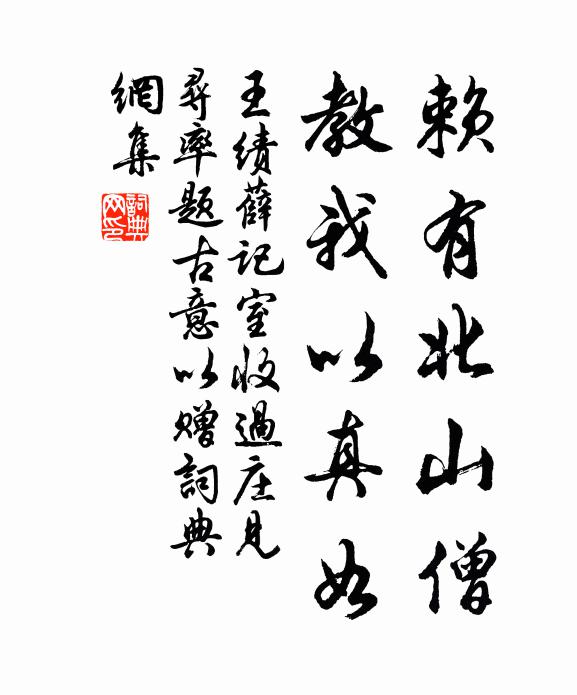 赖有北山僧
教我以真如
王绩薛记室收過庄見
尋率题古意以赠詞典
網集
詞典网印